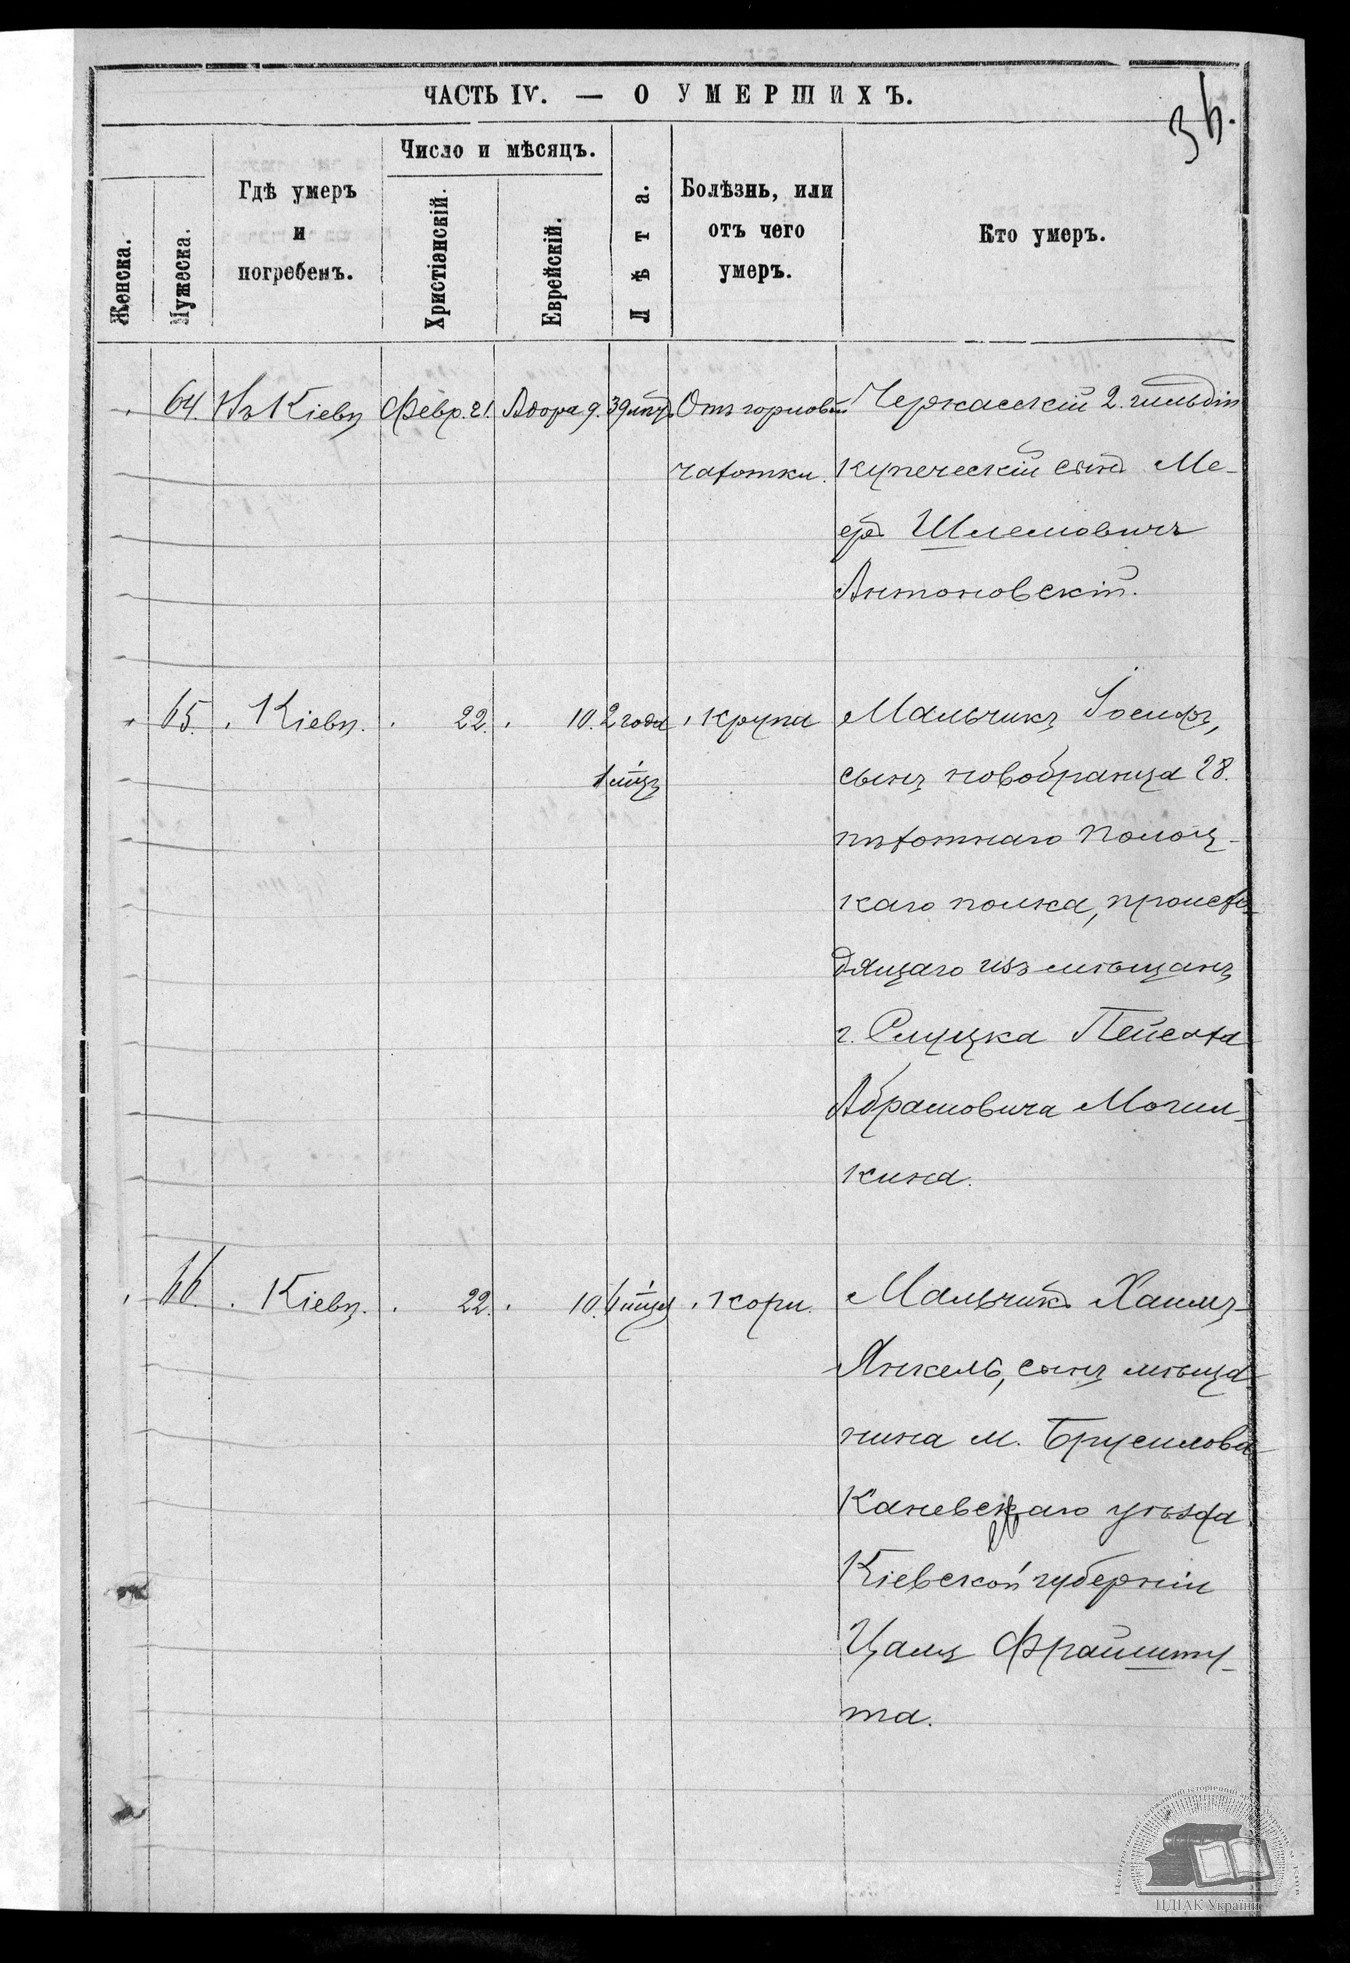 ЧАСТЬ IV. — О УМЕРШИХЪ.
Женска.
Мужеска.
Гдѣ умеръ
и
погребенъ.
Число и мѣсяцъ.
Христіэнскій.
Еврейскій.
Лѣта.
Болѣзнь, или
отъ чего
умеръ.
Кто умеръ.
64. Въ Кіевѣ Февр. 21. Адара 9. 39 Отъ горловой Черкасскій 2. гильдіи
чахотки. купеческій сынъ Ме-
еръ Шлемовичъ
Антоновскій.
65. Кіевѣ. 22. 10. 2 года крупа Мальчикъ Іосифъ,
1 мѣсц сынъ новобранца 28.
пѣхотнаго Полоц-
каго полка, происхо-
дящаго изъ мѣщанъ
г. Слуцка Пейсаха
Абрамовича Могил-
кина.
66. Кіевѣ. 22. 10. 6 мѣсц кори. Мальчикъ Хаимъ-
Янкель, сынъ мѣща-
нина м. Брусилова
Каневскаго уѣзда
Кіевской губерніи
Цаля Фрайшту-
та.
ЦДІАК України